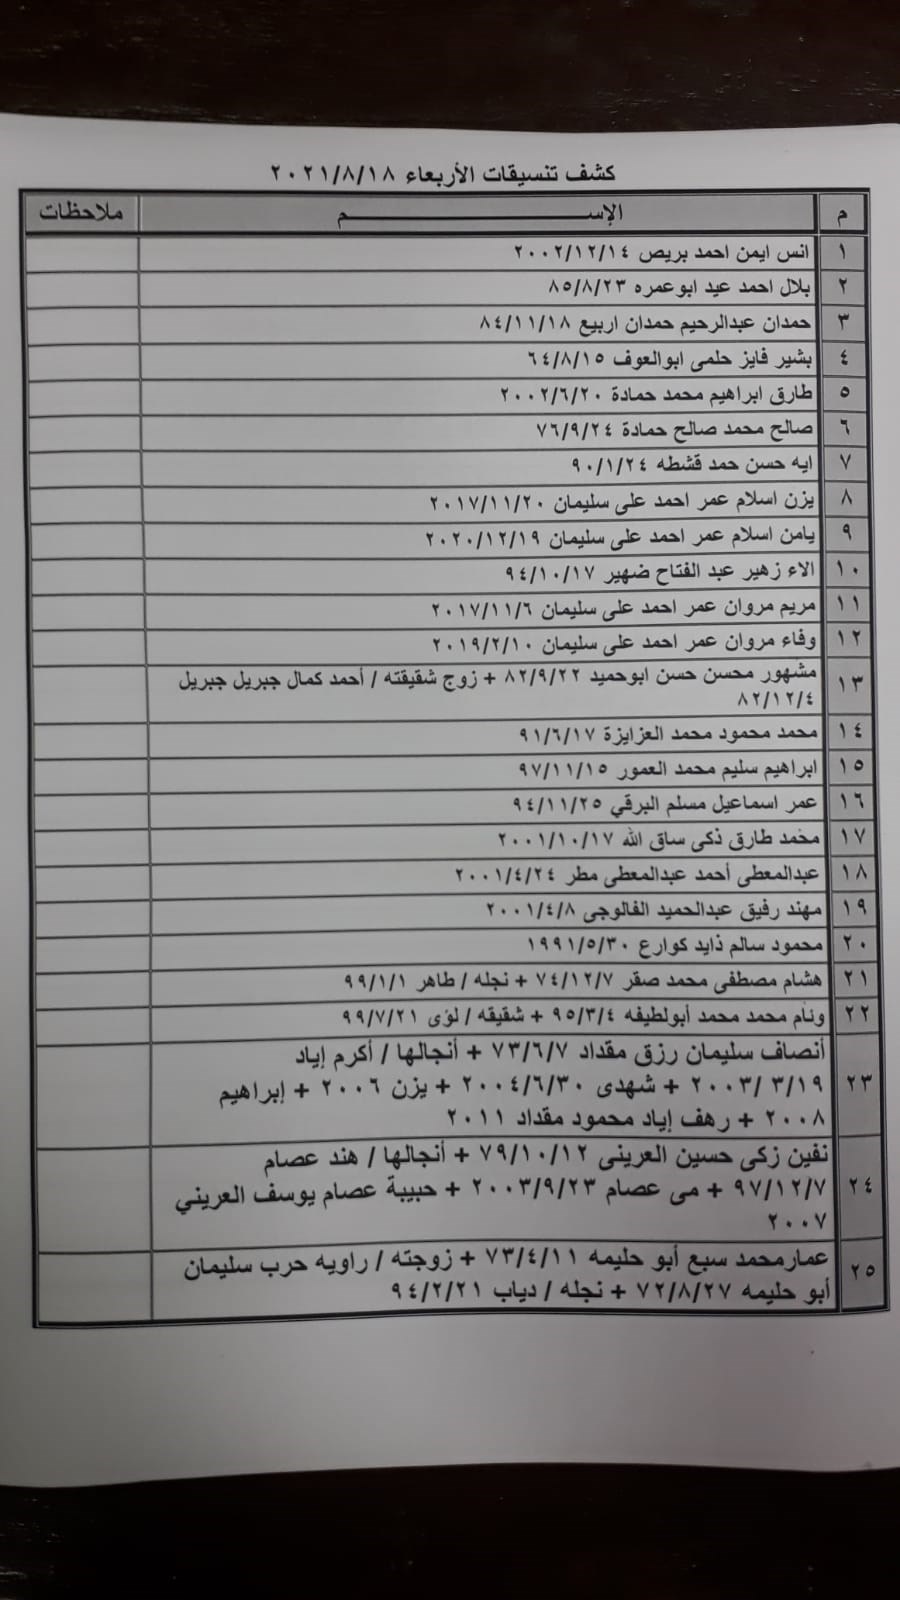 كشف تنسيقات الأربعاء ٢٠٢١/٨/١٨
م الإســـــــــم ملاحظات
١ انس ايمن احمد بريص ٢٠٠٢/١٢/١٤
٢ بلال احمد عيد ابوعمره ٨٥/٨/٢٣
٣ حمدان عبدالرحيم حمدان اربيع ٨٤/١١/١٨
٤ بشير فايز حلمى ابوالعوف ٦٤/٨/١٥
٥ طارق ابراهيم محمد حمادة ٢٠٠٢/٦/٢٠
٦ صالح محمد صالح حمادة ٧٦/٩/٢٤
٧ ايه حسن حمد قشطه ٩٠/١/٢٤
٨ يزن اسلام عمر احمد على سليمان ٢٠١٧/١١/٢٠
٩ يامن اسلام عمر احمد على سليمان ٢٠٢٠/١٢/١٩
١٠ الاء زهير عبد الفتاح ضهير ٩٤/١٠/١٧
١١ مريم مروان عمر احمد على سليمان ٢٠١٧/١١/٦
١٢ وفاء مروان عمر احمد على سليمان ٢٠١٩/٢/١٠
١٣ مشهور محسن حسن ابوحميد ٨٢/٩/٢٢ + زوج شقيقته / أحمد كمال جبريل جبريل
٨٢/١٢/٤
١٤ محمد محمود محمد العزايزة ٩١/٦/١٧
١٥ ابراهيم سليم محمد العمور ٩٧/١١/١٥
١٦ عمر اسماعيل مسلم البرقي ٩٤/١١/٢٥
١٧ محمد طارق ذكى ساق الله ٢٠٠١/١٠/١٧
١٨ عبدالمعطى أحمد عبدالمعطى مطر ٢٠٠١/٤/٢٤
١٩ مهند رفيق عبدالحميد الفالوجى ٢٠٠١/٤/٨
٢٠ محمود سالم ذايد كوارع ١٩٩١/٥/٣٠
٢١ هشام مصطفى محمد صقر ٧٤/١٢/٧ + نجله / طاهر ٩٩/١/١
٢٢ وئام محمد محمد أبولطيفه ٩٥/٣/٤ + شقيقه / لؤى ٩٩/٧/٢١
٢٣ أنصاف سليمان رزق مقداد ٧٣/٦/٧ + أنجالها / أكرم إياد
٢٠٠٣/ ٣/١٩ + شهدى ٢٠٠٤/٦/٣٠ + يزن ٢٠٠٦ + إبراهيم
٢٠٠٨ + رهف إياد محمود مقداد ٢٠١١
٢٤ نفين زكى حسين العرينى ٧٩/١٠/١٢ + أنجالها / هند عصام
٩٧/١٢/٧ + مى عصام ٢٠٠٣/٩/٢٣ + حبيبة عصام يوسف العريني
٢٠٠٧
٢٥ عمارمحمد سبع أبو حليمه ٧٣/٤/١١ + زوجته / راويه حرب سليمان
أبو حليمه ٧٢/٨/٢٧ + نجله / دياب ٩٤/٢/٢١